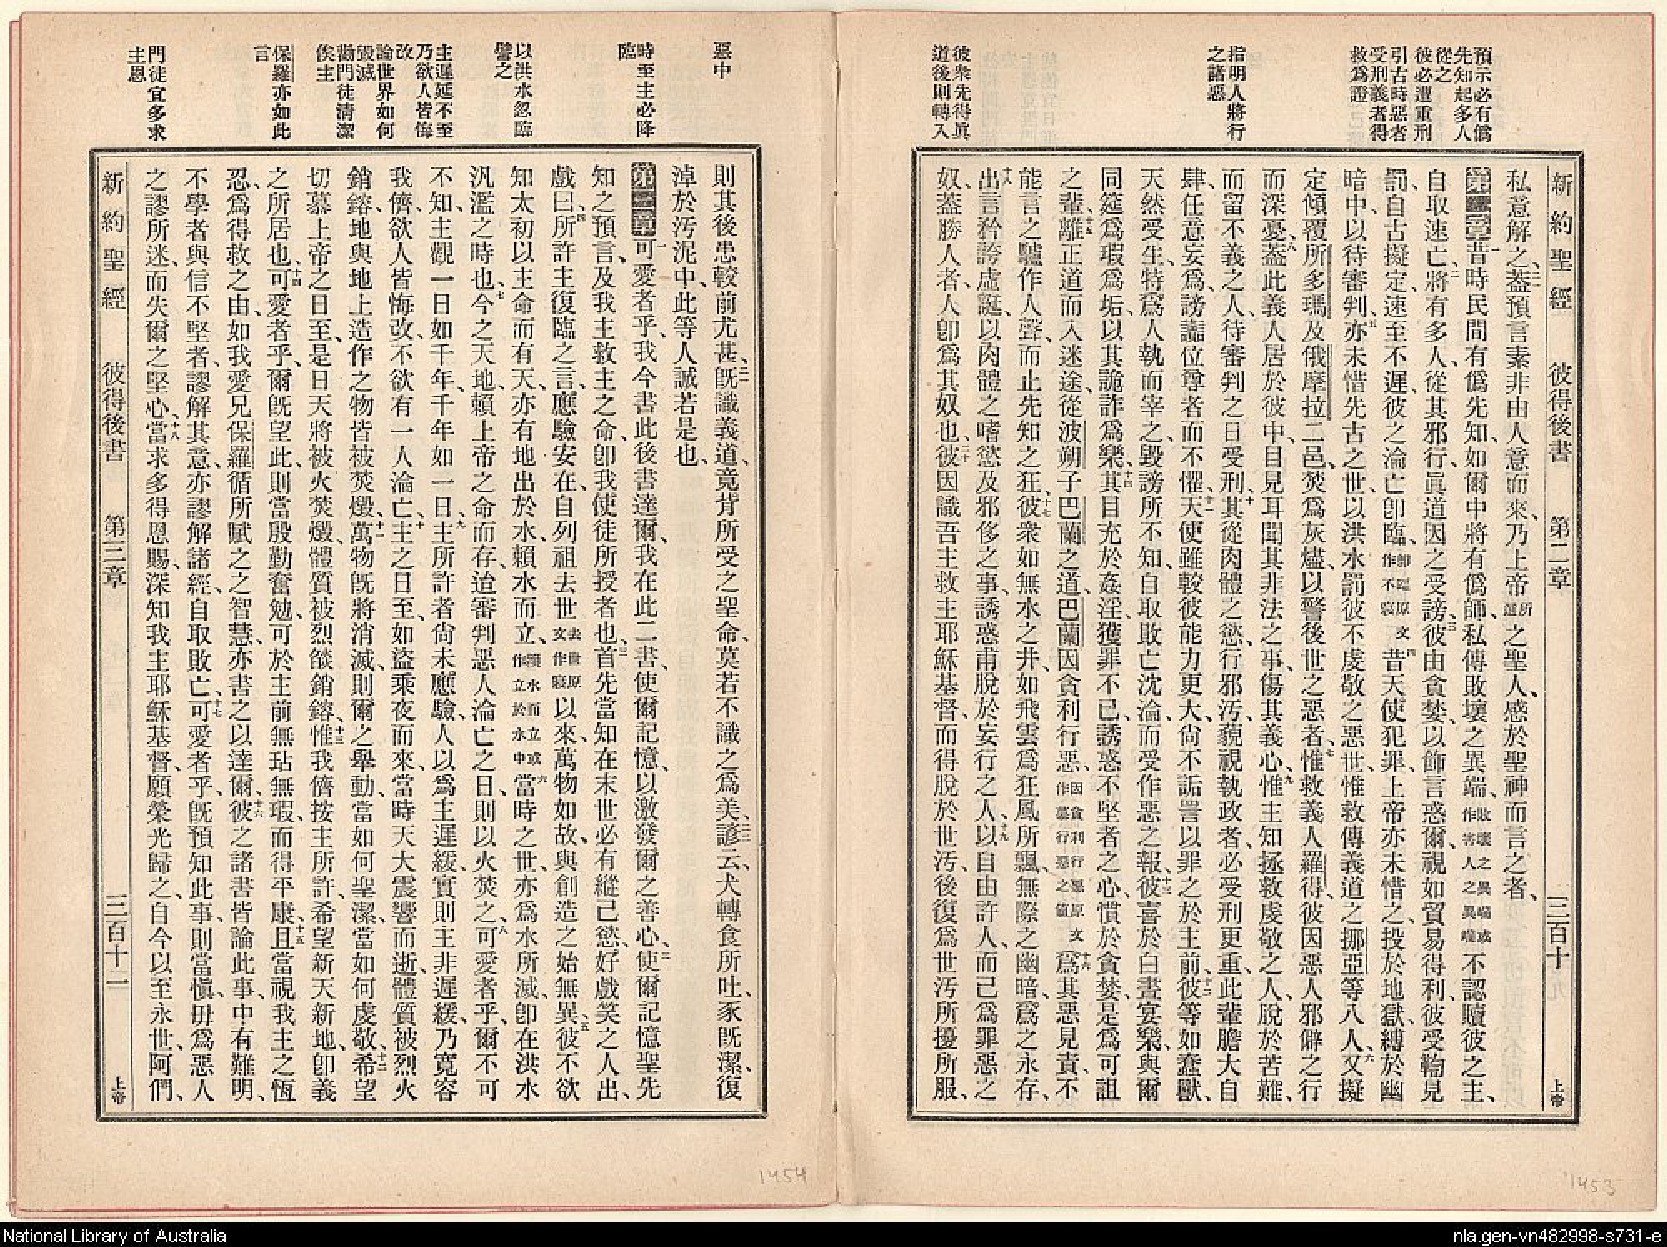 新約聖經 彼得後書 第二章 三百十一 上帝
預示必有僞
先知起多人
從之
彼必遭重刑
引古時惡者
受刑義者得
救爲證
指明人將行
之諸惡
彼衆先得眞
道後則轉入
私意解之、二一蓋預言素非由人意而來、乃上帝所遣之聖人、感於聖神而言之者、
第二章一昔時民間有僞先知、如爾中將有僞師、私傳敗壞之異端、敗壞之異端或作害人之異端不認贖彼之主、
自取速亡、二將有多人、從其邪行、眞道因之受謗、三彼由貪婪、以飾言惑爾、視如貿易得利、彼受鞫見
罰、自古擬定速至不遲、彼之淪亡卽臨、卽臨原文作不寢四昔天使犯罪、上帝亦未惜之、投於地獄、縛於幽
暗中、以待審判、五亦未惜先古之世、以洪水罰彼不虔敬之惡世、惟救傳義道之挪亞等八人、六又擬
定傾覆所多瑪及俄摩拉二邑、焚爲灰燼、以警後世之惡者、七惟救義人羅得、彼因惡人邪僻之行
而深憂、八蓋此義人居於彼中、目見耳聞其非法之事、傷其義心、九惟主知拯救虔敬之人、脫於苦難、
而留不義之人、待審判之日受刑、十其從肉體之慾、行邪汚、藐視執政者、必受刑更重、此輩膽大自
肆、任意妄爲、謗讟位尊者而不懼、十一天使雖較彼能力更大、尙不詬詈以罪之於主前、十二彼等如蠢獸、
天然受生、特爲人執而宰之、毀謗所不知、自取敗亡沈淪、而受作惡之報、十三彼喜於白晝宴樂、與爾
同筵爲瑕爲垢、以其詭詐爲樂、十四其目充於姦淫、獲罪不已、誘惑不堅者之心、慣於貪婪、是爲可詛
之輩、十五離正道而入迷途、從波朔子巴蘭之道、巴蘭因貪利行惡、因貪利行惡原文作慕行惡之値十六爲其惡見責、不
能言之驢作人聲、而止先知之狂、十七彼衆如無水之井、如飛雲爲狂風所飄、無際之幽暗、爲之永存、
十八出言矜誇虛誕、以肉體之嗜慾及邪侈之事、誘惑甫脫於妄行之人、十九以自由許人、而己爲罪惡之
奴、蓋勝人者、人卽爲其奴也、二十彼因識吾主救主耶穌基督、而得脫於世汚、後復爲世汚所擾所服、
惡中
時至主必降
臨
以洪水忽臨
譬之
主遲延不至
乃欲人皆悔
改
論世界如何
毀滅
勸門徒清潔
俟主
保羅亦如此
言
門徒宜多求
主恩
則其後患較前尤甚、二一旣識義道、竟背所受之聖命、莫若不識之爲美、二二諺云、犬轉食所吐、豕旣潔、復
淖於汚泥中、此等人誠若是也、
第三章一可愛者乎、我今書此後書達爾、我在此二書、使爾記憶、以激發爾之善心、二使爾記憶聖先
知之預言、及我主救主之命、卽我使徒所授者也、三首先當知在末世必有縱己慾、好戲笑之人出、
戲曰、四所許主復臨之言、應驗安在、自列祖去世去世原文作寢以來、萬物如故、與創造之始無異、五彼不欲
知太初以主命而有天、亦有地出於水、賴水而立、賴水而立或作立於水中六當時之世、亦爲水所滅、卽在洪水
汎濫之時也、七今之天地、賴上帝之命而存、迨審判惡人淪亡之日、則以火焚之、八可愛者乎、爾不可
不知、主觀一日如千年、千年如一日、九主所許者尙未應驗、人以爲主遲緩、實則主非遲緩、乃寬容
我儕、欲人皆悔改、不欲有一人淪亡、十主之日至、如盜乘夜而來、當時天大震響而逝、體質被烈火
銷鎔、地與地上造作之物皆被焚燬、十一萬物旣將消滅、則爾之舉動、當如何聖潔、當如何虔敬、十二希望
切慕上帝之日至、是日天將被火焚燬、體質被烈燄銷鎔、十三惟我儕按主所許、希望新天新地、卽義
之所居也、十四可愛者乎、爾旣望此、則當殷勤奮勉、可於主前無玷無瑕而得平康、十五且當視我主之恆
忍、爲得救之由、如我愛兄保羅循所賦之之智慧、亦書之以達爾、十六彼之諸書皆論此事、中有難明、
不學者與信不堅者、謬解其意、亦謬解諸經、自取敗亡、十七可愛者乎、旣預知此事、則當愼、毋爲惡人
之謬所迷、而失爾之堅心、十八當求多得恩賜、深知我主耶穌基督、願榮光歸之、自今以至永世、阿們、
新約聖經 彼得後書 第三章 三百十二 上帝
1454
1453
National Library of Australia
nla.gen-vn482998-s731-e